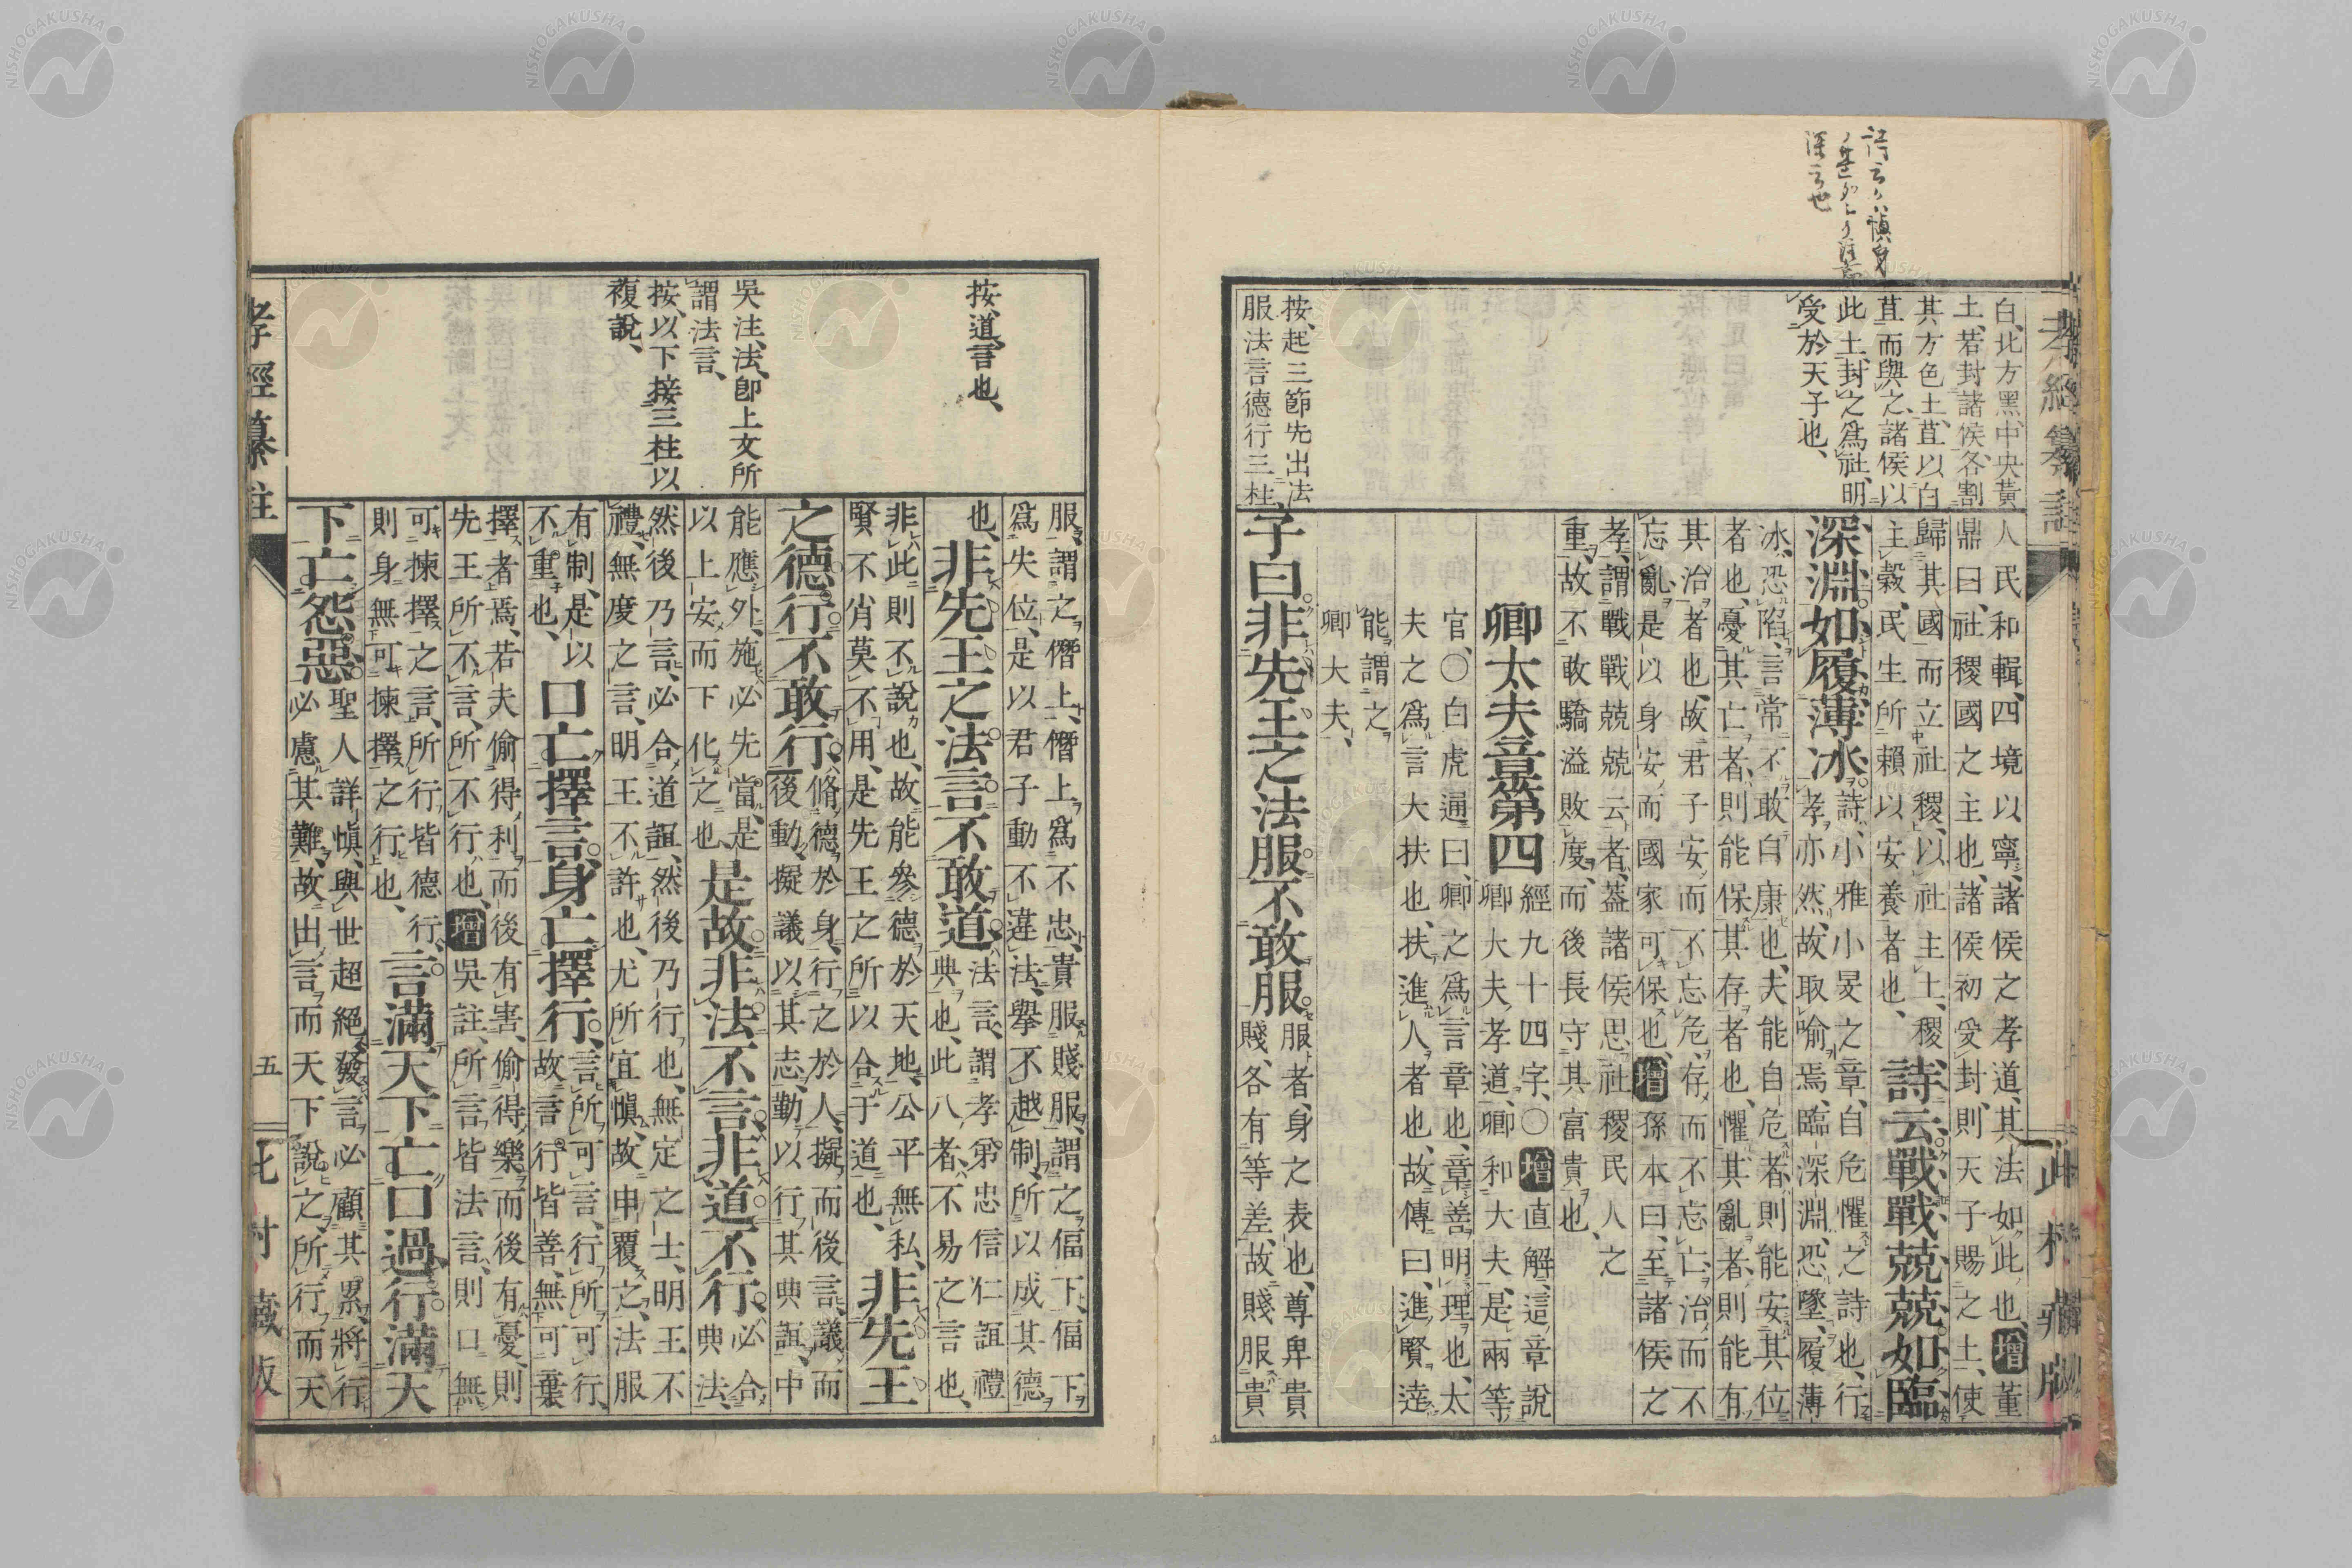 白、北方黑、中央黃
土、若封諸侯、各割
其方色土、苴以白
苴而與之、諸侯以
此土封之爲社、明
受於天子也、
按、起三節先出法
服法言德行三柱
人民和輯、四境以寧、諸侯之孝道、其法如此也、增董
鼎曰、社稷國之主也、諸侯初受封、則天子賜之土、使
歸其國而立社稷、以社主土、稷
主穀、民生所賴以安養者也、
詩云戰戰兢兢如臨
深淵如履薄冰
詩、小雅小旻之章、自危懼之詩也、行
孝亦然、故取喻焉、臨深淵、恐墜、履薄
冰、恐陷、言常不敢自康也、夫能自危者、則能安其位
者也、憂其亡者、則能保其存者也、懼其亂者、則能有
其治者也、故君子安而不忘危、存而不忘亡、治而不
忘亂、是以身安而國家可保也、增孫本曰、至諸侯之
孝、謂戰戰兢兢云者、蓋諸侯思社稷民人之
重、故不敢驕溢敗度、而後長守其富貴也、
卿大夫章第四
經九十四字、〇增直解、這章說
卿大夫孝道、卿和大夫、是兩等
官、〇白虎通曰、卿之爲言章也、章善明理也、太
夫之爲言大扶也、扶進人者也、故傳曰、進賢達
能謂之
卿大夫、
子曰非先王之法服不敢服
服者、身之表也、尊卑貴
賤、各有等差、故賤服貴
按、道、言也、
吳注、法、卽上文所
謂法言、
按、以下接三柱以
複說、
服、謂之僭上、僭上爲不忠、貴服賤服、謂之偪下、偪下
爲失位、是以君子動不違法、舉不越制、所以成其德
也、
非先王之法言不敢道
法言、謂孝弟忠信仁誼禮
典也、此八者、不易之言也、
非此則不說也、故能參德於天地、公平無私、
賢不肖莫不用、是先王之所以合于道也、
非先王
之德行不敢行
脩德於身、行之於人、擬而後言、議而
後動、擬議以其志、動以行其典誼、中
能應外、施必先當、是
以上安而下化之也、
是故非法不言非道不行
必合
典法、
然後乃言、必合道誼、然後乃行也、無定之士、明王不
禮、無度之言、明王不許也、尤所宜愼、故申覆之、法服
有制、是以
不重也、
口亡擇言身亡擇行
言所可言、行所可行、
故言行皆善、無可棄
擇者焉、若夫偷得利而後有害、偷得樂而後有憂、則
先王所不言、所不行也、增吳註、所言皆法言、則口無
可揀擇之言、所行皆德行、
則身無可揀擇之行也、
言滿天下亡口過行滿天
下亡怨惡
聖人詳愼、與世超絕、發言必顧其累、將行
必慮其難、故出言而天下說之、所行而天
孝經纂註
五